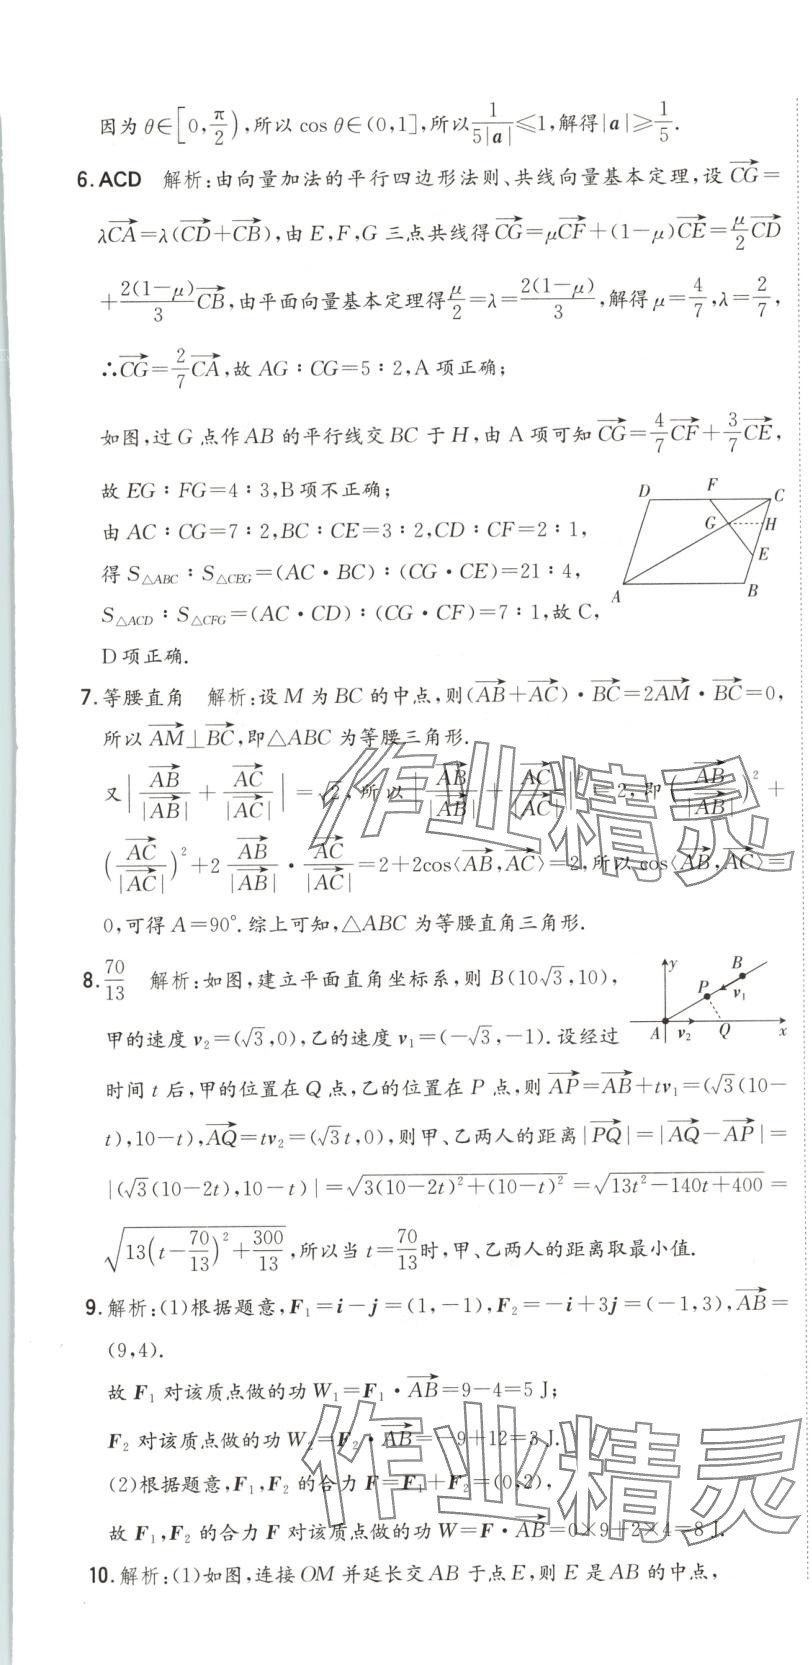 因为θ∈[0,π/2),所以cos θ∈(0,1],所以1/(5|a|)≤1,解得|a|≥1/5.
6.ACD 解析:由向量加法的平行四边形法则、共线向量基本定理,设CG→=
λCA→=λ(CD→+CB→),由E,F,G三点共线得CG→=μCF→+(1-μ)CE→=μ/2 CD→
+2(1-μ)/3 CB→,由平面向量基本定理得μ/2=λ=2(1-μ)/3,解得μ=4/7,λ=2/7,
∴CG→=2/7 CA→,故AG∶CG=5∶2,A项正确;
如图,过G点作AB的平行线交BC于H,由A项可知CG→=4/7 CF→+3/7 CE→,
故EG∶FG=4∶3,B项不正确;
由AC∶CG=7∶2,BC∶CE=3∶2,CD∶CF=2∶1,
得S△ABC∶S△CEG=(AC·BC)∶(CG·CE)=21∶4,
S△ACD∶S△CFG=(AC·CD)∶(CG·CF)=7∶1,故C,
D项正确.
D F C G H E A B
7.等腰直角 解析:设M为BC的中点,则(AB→+AC→)·BC→=2AM→·BC→=0,
所以AM→⊥BC→,即△ABC为等腰三角形.
又|AB→/|AB→|+AC→/|AC→||=√2,所以|AB→/|AB→|+AC→/|AC→||²=2,即(AB→/|AB→|)²+
(AC→/|AC→|)²+2 AB→/|AB→|·AC→/|AC→|=2+2cos⟨AB→,AC→⟩=2,所以cos⟨AB→,AC→⟩=
0,可得A=90°.综上可知,△ABC为等腰直角三角形.
8.70/13 解析:如图,建立平面直角坐标系,则B(10√3,10),
甲的速度v₂=(√3,0),乙的速度v₁=(-√3,-1).设经过
y B P v₁ A v₂ Q x
时间t后,甲的位置在Q点,乙的位置在P点,则AP→=AB→+tv₁=(√3(10-
t),10-t),AQ→=tv₂=(√3t,0),则甲、乙两人的距离|PQ→|=|AQ→-AP→|=
|(√3(10-2t),10-t)|=√(3(10-2t)²+(10-t)²)=√(13t²-140t+400)=
√(13(t-70/13)²+300/13),所以当t=70/13时,甲、乙两人的距离取最小值.
9.解析:(1)根据题意,F₁=i-j=(1,-1),F₂=-i+3j=(-1,3),AB→=
(9,4).
故F₁对该质点做的功W₁=F₁·AB→=9-4=5 J;
F₂对该质点做的功W₂=F₂·AB→=-9+12=3 J.
(2)根据题意,F₁,F₂的合力F=F₁+F₂=(0,2),
故F₁,F₂的合力F对该质点做的功W=F·AB→=0×9+2×4=8 J.
10.解析:(1)如图,连接OM并延长交AB于点E,则E是AB的中点,
作业精灵
作业精灵